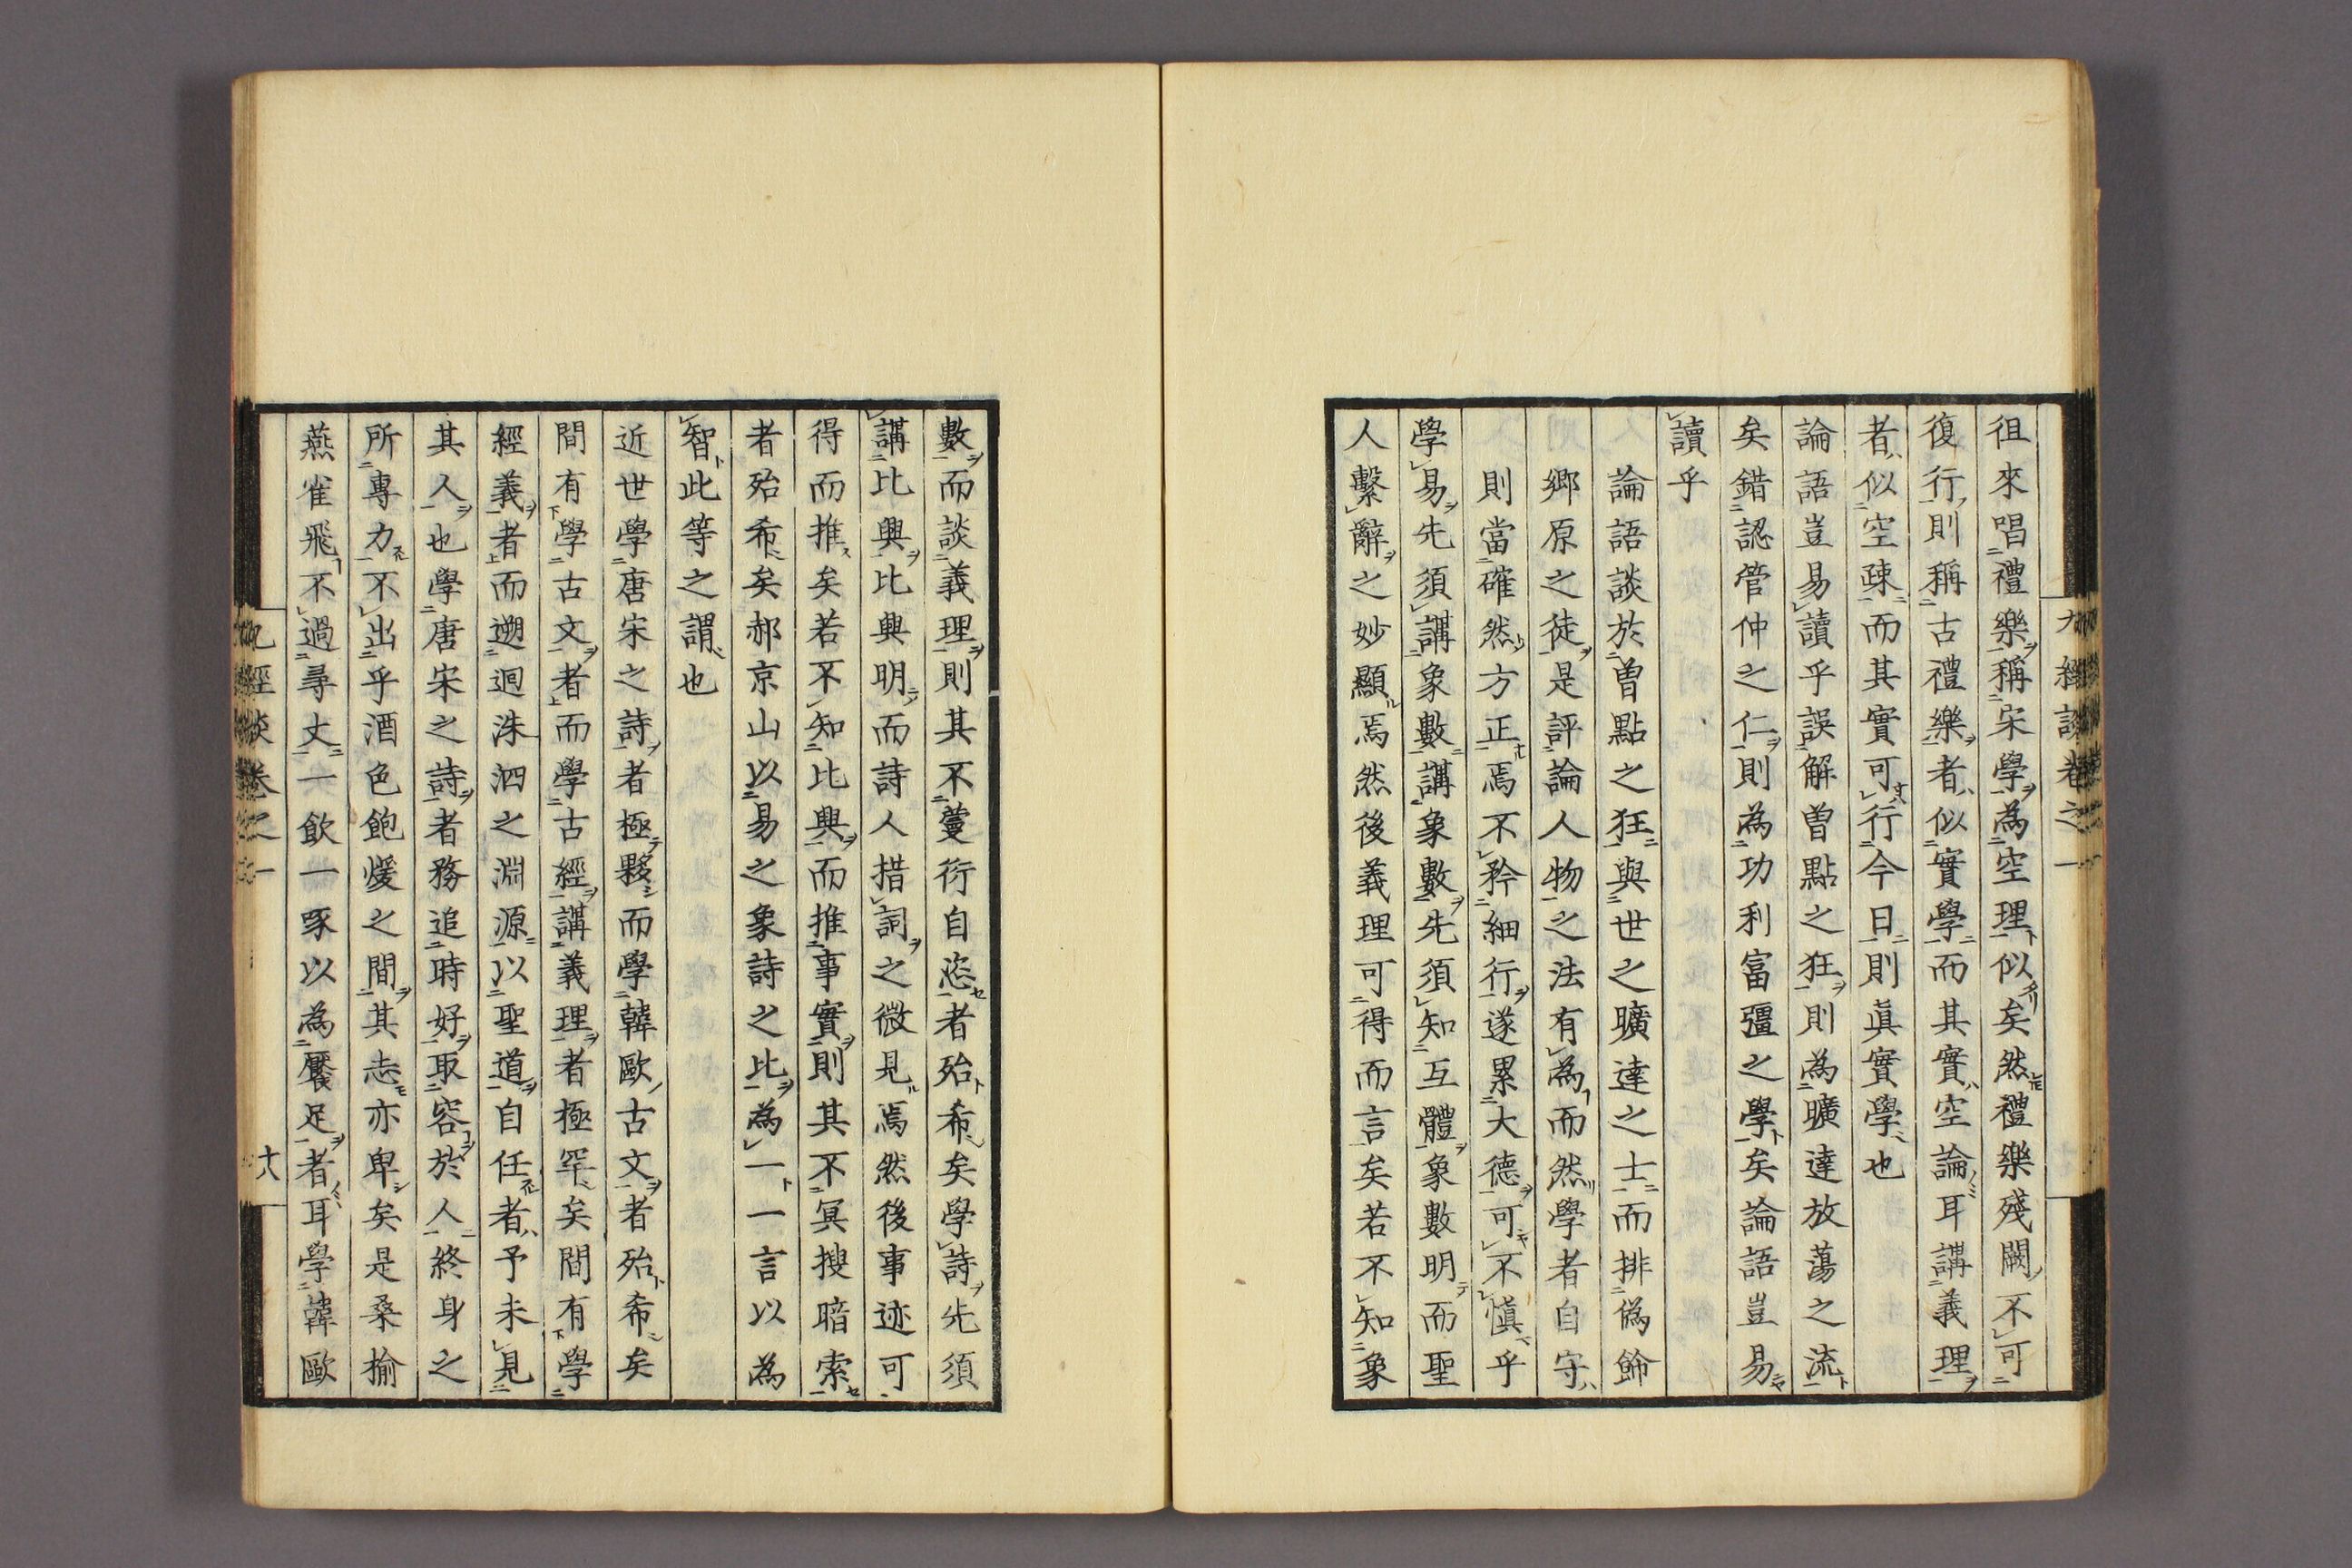 徂來唱禮樂稱宋學為空理似矣然禮樂殘闕不可
復行則稱古禮樂者似實學而其實空論耳講義理
者似空疎而其實可行今日則眞實學也
論語豈易讀乎誤解曽點之狂則為曠達放蕩之流
矣錯認管仲之仁則為功利富彊之學矣論語豈易
讀乎
論語談於曽點之狂與世之曠達之士而排偽飾
鄉原之徒是評論人物之法有為而然學者自守
則當確然方正焉不矜細行遂累大德可不慎乎
學易先須講象數講象數先須知互體象數明而聖
人繫辭之妙顯焉然後義理可得而言矣若不知象
數而談義理則其不蔓衍自恣者殆希矣學詩先須
講比興比興明而詩人措詞之微見焉然後事迹可
得而推矣若不知比興而推事實則其不冥搜暗索
者殆希矣郝京山以易之象詩之比為一一言以為
智此等之謂也
近世學唐宋之詩者極夥而學韓歐古文者殆希矣
間有學古文者而學古經講義理者極罕矣間有學
經義者而遡迴洙泗之淵源以聖道自任者予未見
其人也學唐宋之詩者務追時好取容於人終身之
所專力不出乎酒色飽煖之間其志亦卑矣是桑揄
燕雀飛不過尋丈一飲一啄以為饜足者耳學韓歐
九經談卷之一
九經談卷之一
十八